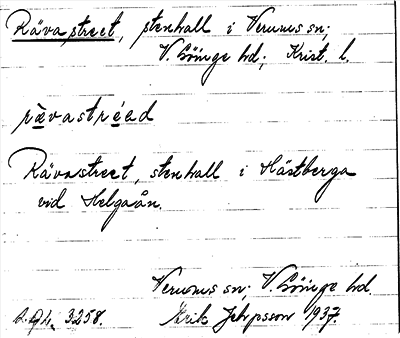 Rävastreet, stenhall i Verums sn;
V. Göinge hd; Krist. l.
rävastréad
Rävastreet, stenhall i Hästberga
vid Helgaån.
Verums sn; V. Göinge hd.
3258. Erik Jeppsson 1937.